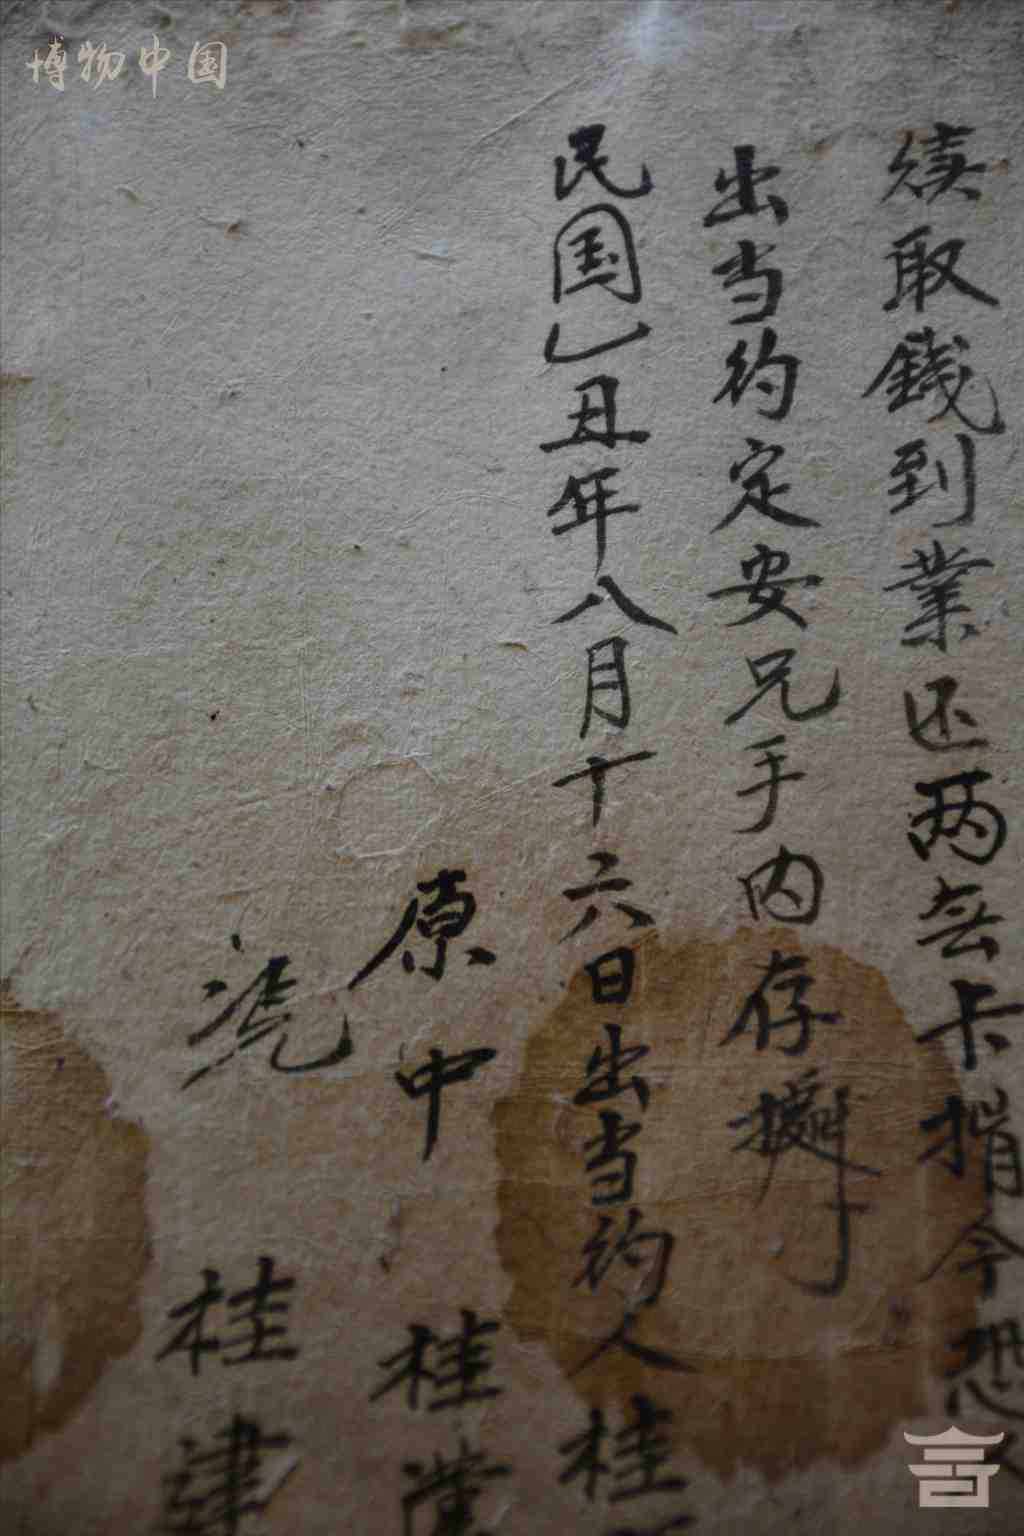 博物中国
续取錢到業还两無卡揹今恐
出当约定安兄手内存攈
民国乚丑年八月十六日出当约人桂
原中 桂堂
凴 桂建